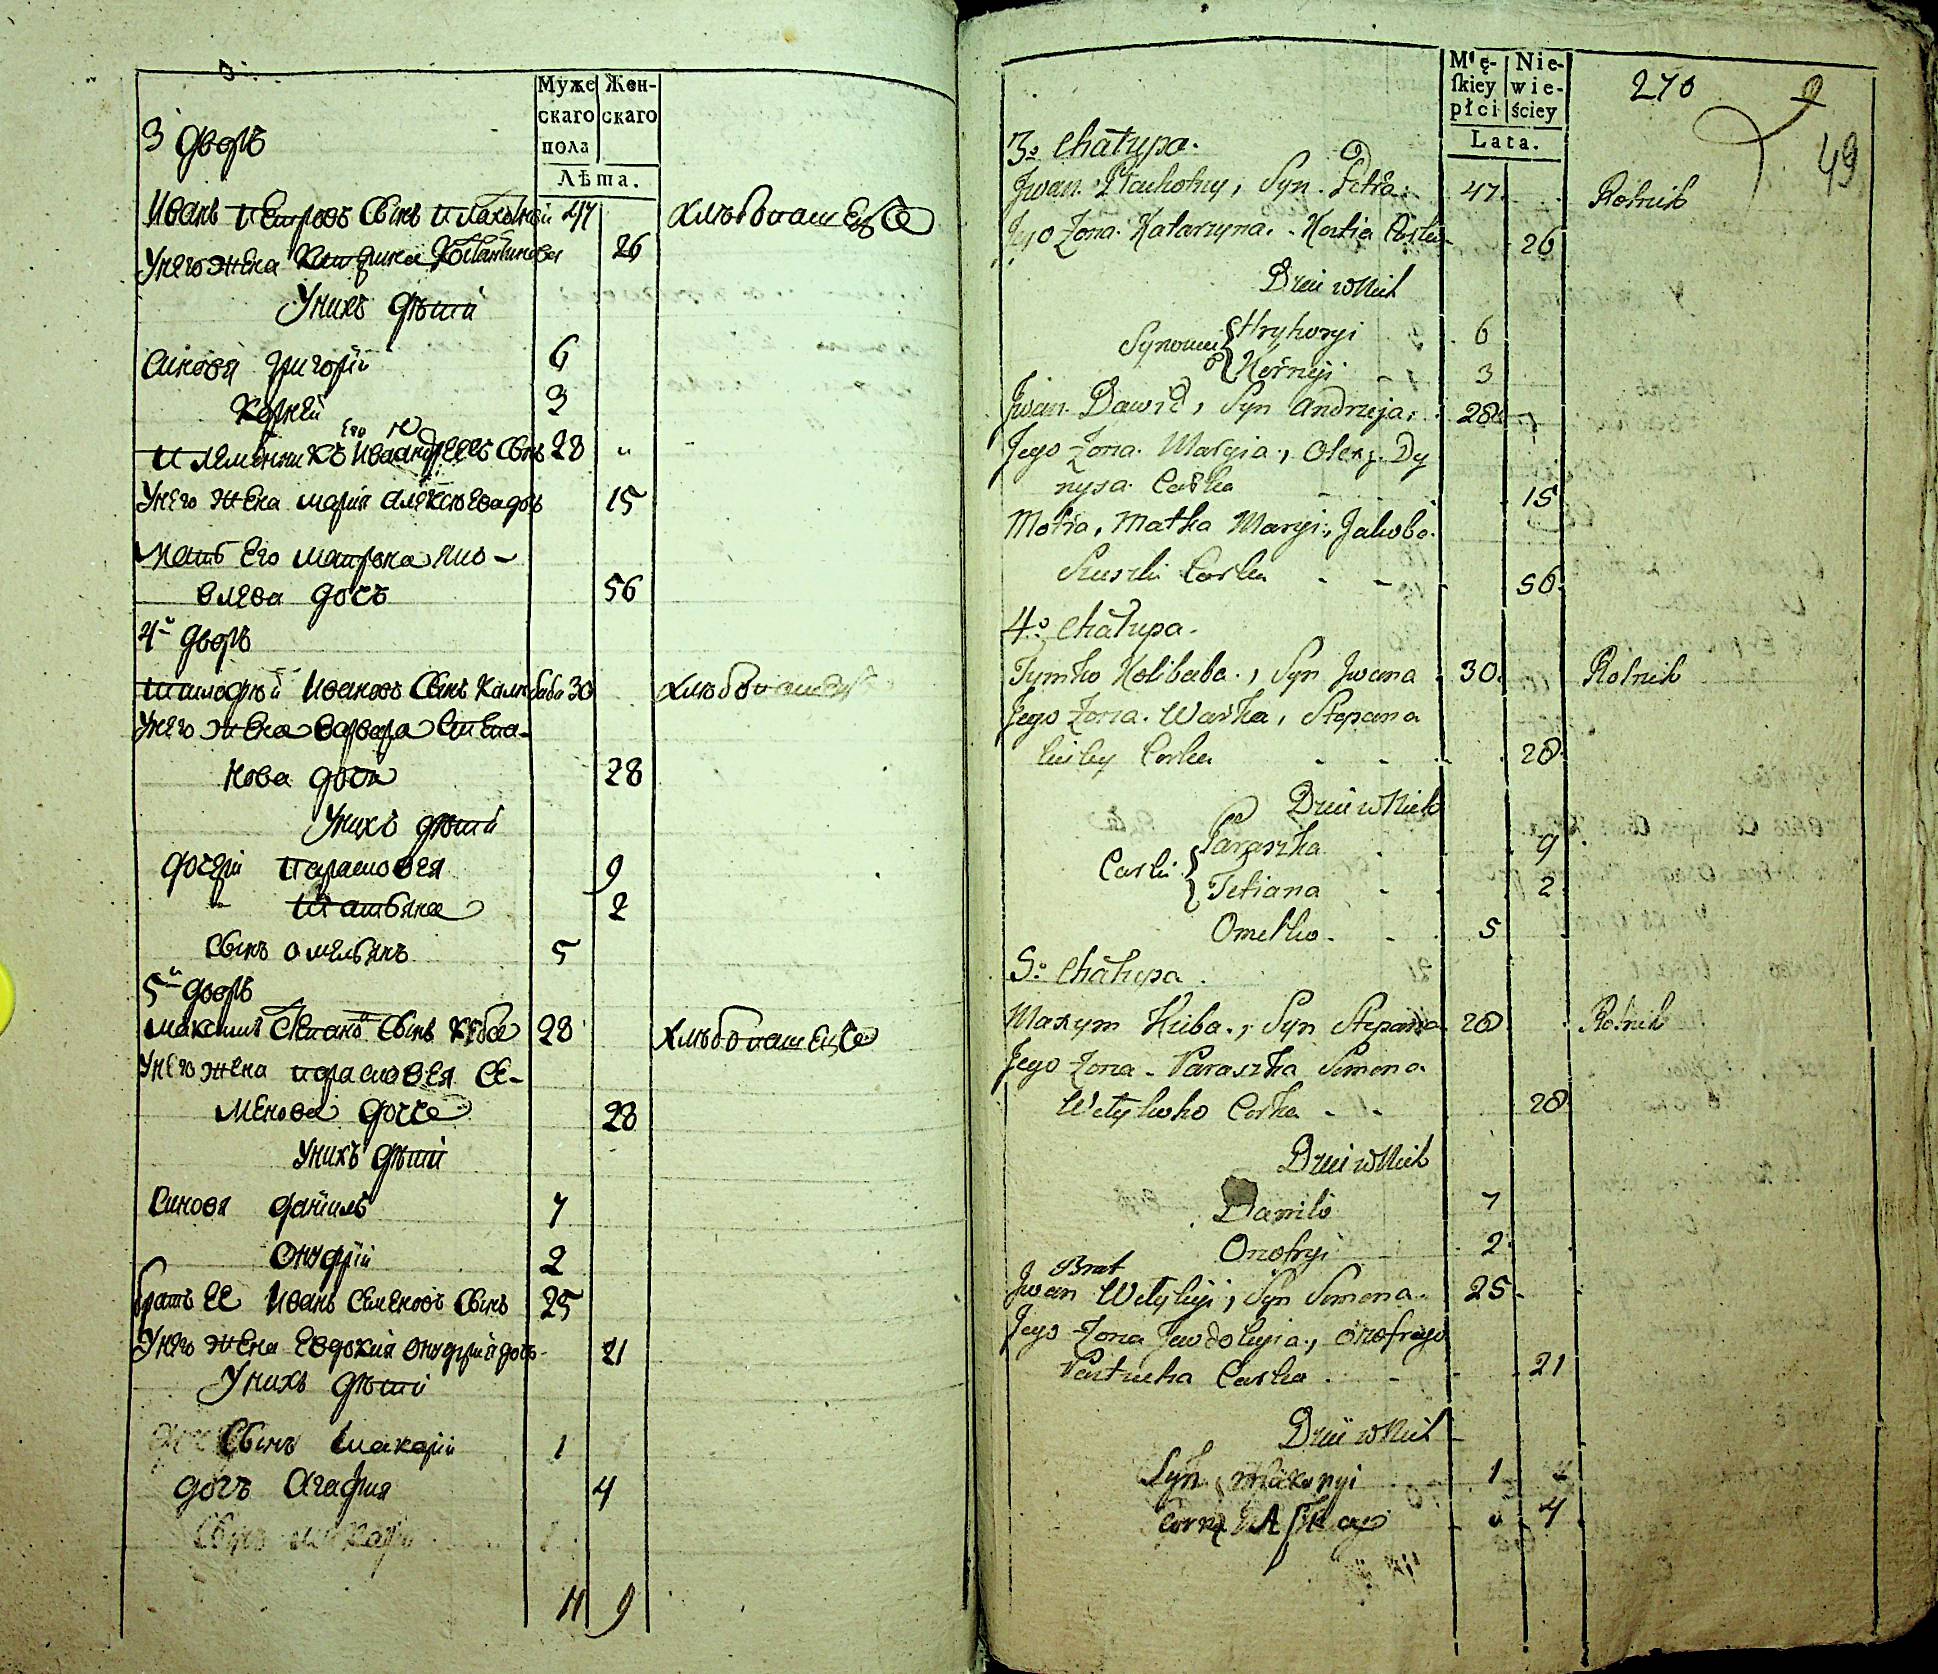 Муже Жен-
скаго скаго
пола
Лѣта.
3 дворъ
Иванъ Петровъ Сынъ Плахотный 47 хлѣбопашецъ
У него жена Катерина Константинова 26
У нихъ дѣти
Синовя григорій 6
Корней 3
племенникъ Его Иванъ андреевъ Сынъ 28
У него жена мария алексеева дочь 15
мать Его матрона яко-
влева дочь 56
4й дворъ
тимофѣй Ивановъ Сынъ Калибаба 30 хлѣбопашецъ
У него жена варвара Степа-
нова дочь 28
У нихъ дѣти
дочери парасковея 9
татьяна 2
Сынъ омельянъ 5
5й дворъ
максимъ Степановъ Сынъ Куба 28 хлѣбопашецъ
У него жена парасковея Се-
менова дочь 28
У нихъ дѣти
Синовя даніилъ 7
Онуфрій 2
братъ ее Иванъ семеновъ Сынъ 25
У него жена евдокия онуфрія дочь 21
У нихъ дѣти
Сынъ макарій 1
дочь Агафия 4
11 9
Męſkiey płci Niewieściey
Lata.
270 9
49
3o Chałupa.
Jwan Płachotny, Syn Petra 47 Rolnik
Jego Żona Katarzyna Corka 26
Dzieci w Nich
Synowie Hryhoryi 6
Kornyi 3
Jwan Dawid, Syn Andrzeja 28
Jego Żona Maryia, Olexy Dy
nysa Corka 15
Motra, Matka Maryi, Jakoba
Corka 56
4o Chałupa.
Tymko Kolibaba, Syn Jwana 30 Rolnik
Jego Żona Warka, Stepana
Corka 28
Dzieci w Nich
Corki Paraszka 9
Tetiana 2
Omelko 5
5o Chałupa.
Maxym Kuba, Syn Stepana 28 Rolnik
Jego Żona Paraszka Semena
Wełykoho Corka 28
Dzieci w Nich
Daniło 7
Onofryi 2
Brat
Jwan Wełykyi, Syn Semena 25
Jego Żona Jewdokyia, Onofreyo
Corka 21
Dzieci w Nich
Syn Makaryi 1
4